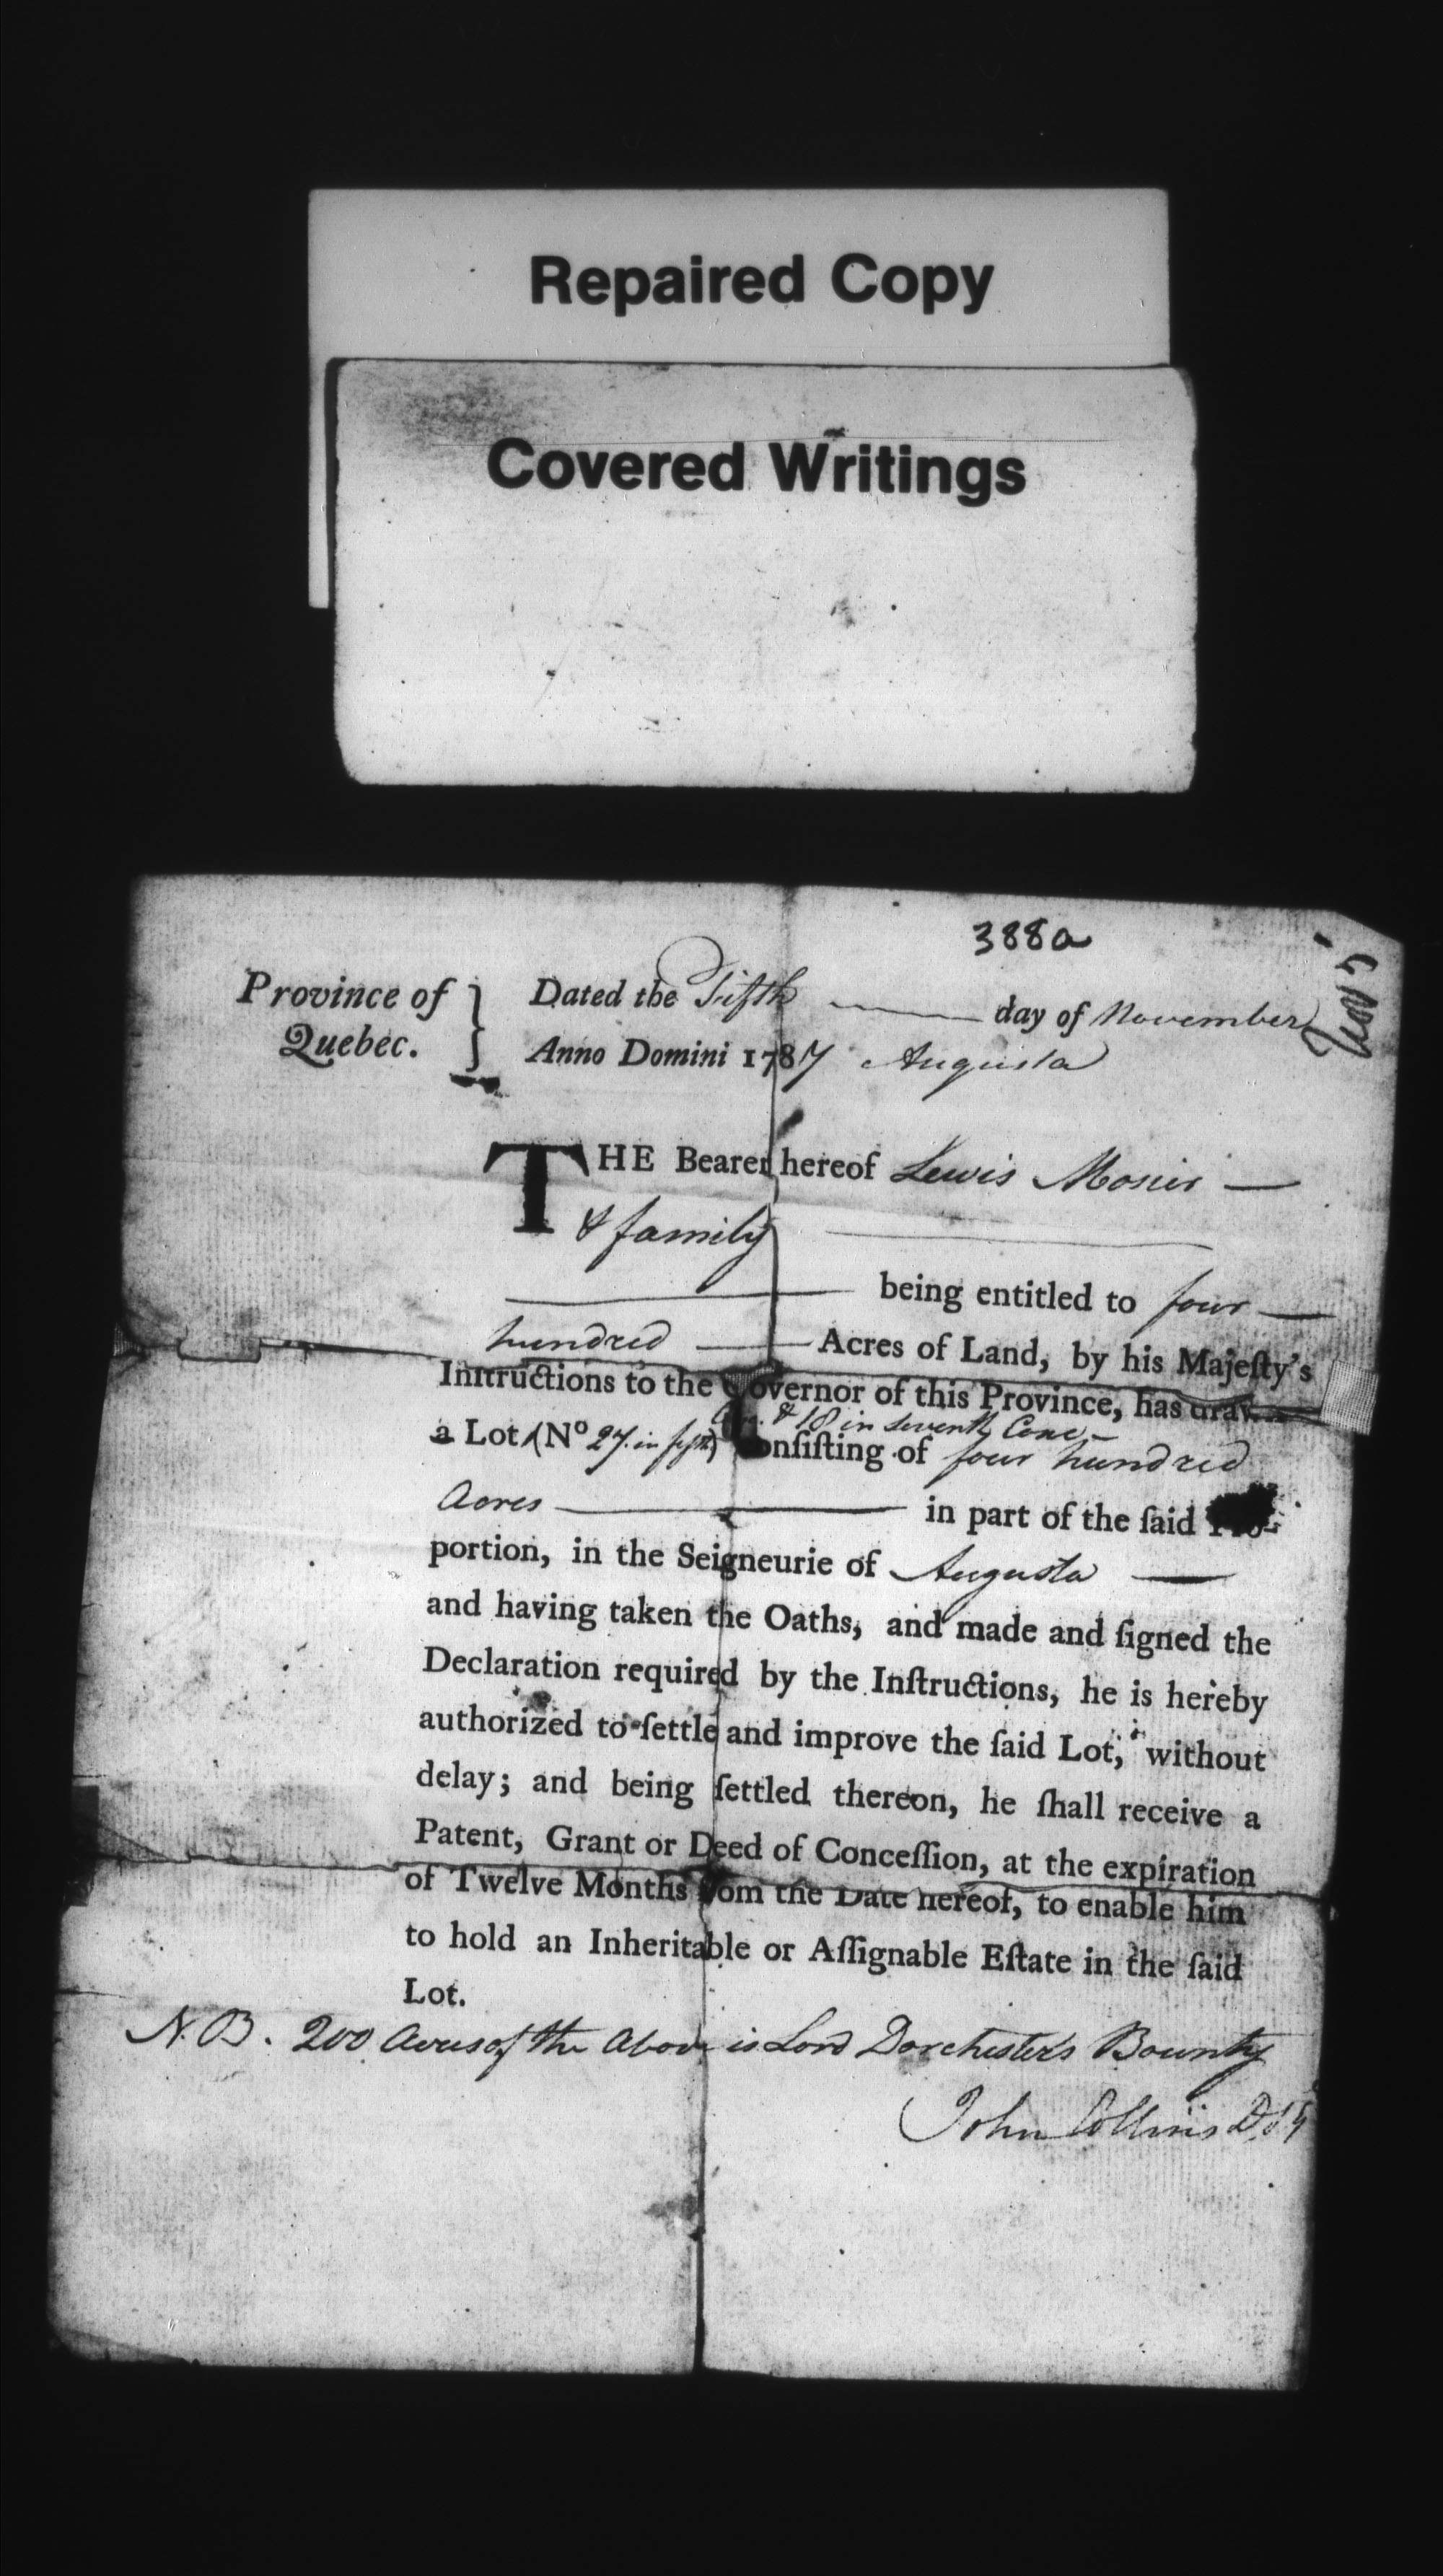 Repaired Copy
Covered Writings
388a
Nov 5
Province of Quebec. } Dated the Fifth day of November
Anno Domini 1787 Augusta
THE Bearer hereof Lewis Mosier
& family
being entitled to four
hundred Acres of Land, by his Majeſty's
Inſtructions to the Governor of this Province, has drawn
& 18 in seventh Conc.
a Lot (No 27 in ) Conſiſting of four hundred
Acres in part of the ſaid Pro-
portion, in the Seigneurie of Augusta
and having taken the Oaths, and made and ſigned the
Declaration required by the Inſtructions, he is hereby
authorized to ſettle and improve the ſaid Lot, without
delay; and being ſettled thereon, he ſhall receive a
Patent, Grant or Deed of Conceſſion, at the expiration
of Twelve Months from the Date hereof, to enable him
to hold an Inheritable or Aſſignable Eſtate in the ſaid
Lot.
N.B. 200 Acres of the Above is Lord Dorchester's Bounty
John Collins